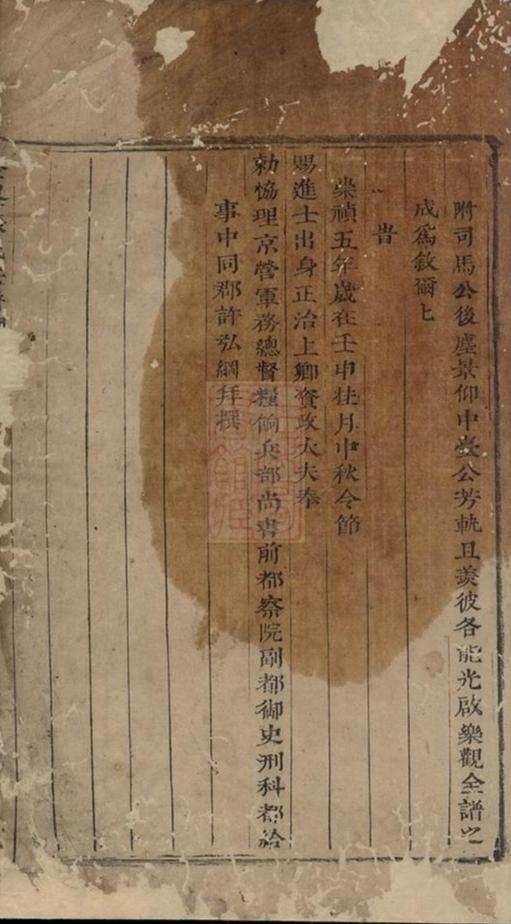 附司馬公後塵景仰中臺公芳軌且羨彼各能光啟樂觀全譜之
成爲敘爾乜
旹
崇禎五年歲在壬申桂月中秋令節
賜進士出身正治上卿資政大夫奉
勑協理京營軍務總督糧餉兵部尚書前都察院副都御史刑科都給
事中同郡許弘綱拜撰